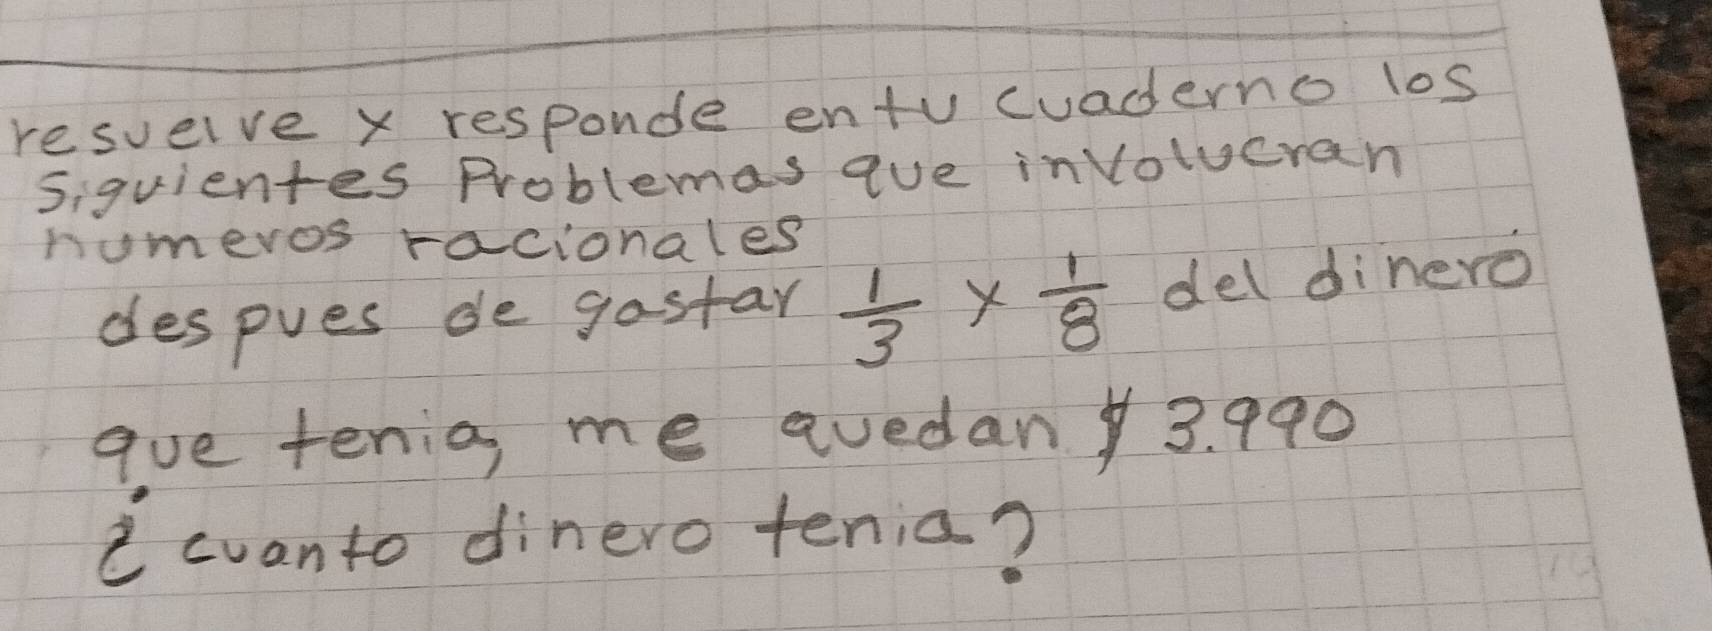 resuelve y responde en tu cuaderno los
siguientes Problemas que involucran
numeros racionales
despues de gastar 1/3 y 1/8 del dinero
que tenia, me quedan $ 3.990
¿ cuanto dinero tenia?